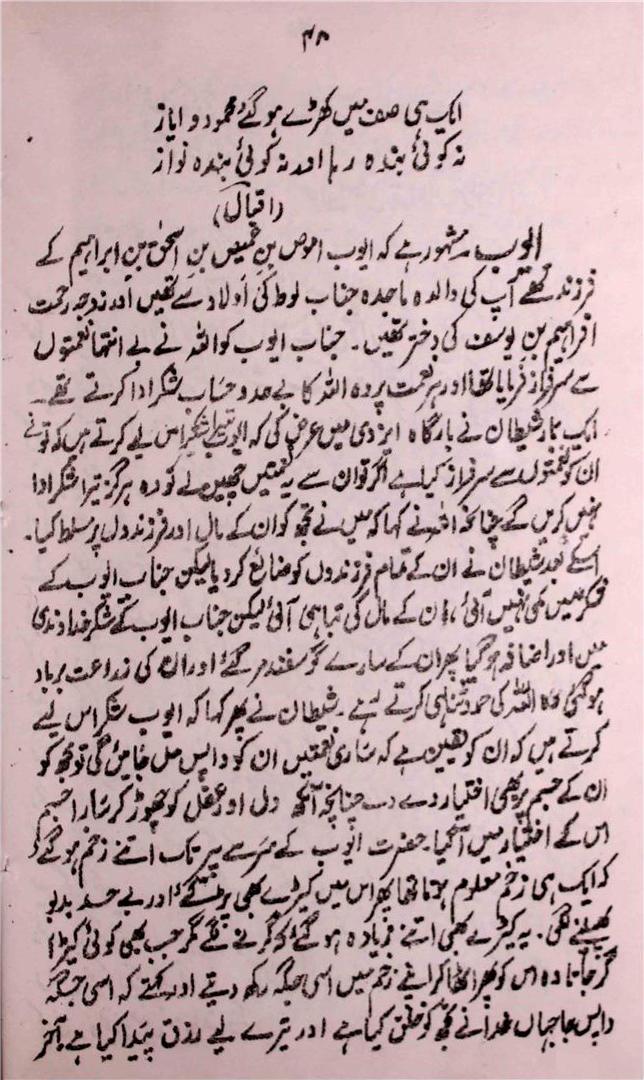 ۴۸
ایک ہی صف میں کھڑے ہو گئے محمود و ایاز
نہ کوئی بندہ رہا اور نہ کوئی بندہ نواز
(اقبال)
ایوب۔ مشہور ہے کہ ایوب اموص بن عیص بن اسحٰق بن ابراہیم کے
فرزند تھے آپ کی والدہ ماجدہ جناب لوط کی اولاد سے تھیں اور زوجہ رحمت
افراہیم بن یوسف کی دختر تھیں۔ جناب ایوب کو اللہ نے بے انتہا نعمتوں
سے سرفراز فرمایا تھا اور ہر نعمت پر وہ اللہ کا بے حد و حساب شکر ادا کرتے تھے۔
ایک بار شیطان نے بارگاہ ایزدی میں عرض کی کہ ایوب تیرا شکر اس لیے کرتے ہیں کہ تو نے
ان کو نعمتوں سے سرفراز کیا ہے اگر تو ان سے یہ نعمتیں چھین لے تو وہ ہرگز تیرا شکر ادا
نہیں کریں گے چنانچہ اللہ نے کہا کہ میں نے تجھ کو ان کے مال اور فرزندوں پر مسلط کیا۔
اسکے بعد شیطان نے ان کے تمام فرزندوں کو ضائع کر دیا لیکن جناب ایوب کے
شکر میں کمی نہیں آئی، ان کے مال کی تباہی آئی لیکن جناب ایوب کے شکر خداوندی
میں اور اضافہ ہو گیا پھر ان کے سارے گوسفند مر گئے اور ان کی زراعت برباد
ہو گئی وہ اللہ کی حمد و ثنا ہی کرتے رہے۔ شیطان نے پھر کہا کہ ایوب شکر اس لیے
کرتے ہیں کہ ان کو یقین ہے کہ ساری نعمتیں ان کو واپس مل جائیں گی تو مجھ کو
ان کے جسم پر بھی اختیار دے دے چنانچہ آنکھ دل اور عقل کو چھوڑ کر سارا جسم
اس کے اختیار میں آ گیا۔ حضرت ایوب کے سر سے پیر تک اتنے زخم ہو گئے
کہ ایک ہی زخم معلوم ہوتا تھا پھر اس میں کیڑے بھی پڑ گئے اور بے حد بدبو
پھیلنے لگی۔ یہ کیڑے بھی اتنے زیادہ ہو گئے کہ گرنے لگے مگر جب بھی کوئی کیڑا
گر جاتا وہ اس کو پھر اٹھا کر اپنے زخم میں اسی جگہ رکھ دیتے اور کہتے کہ اسی جگہ
واپس جا جہاں خدا نے تجھ کو خلق کیا ہے اور تیرے لیے رزق پیدا کیا ہے۔ آخر